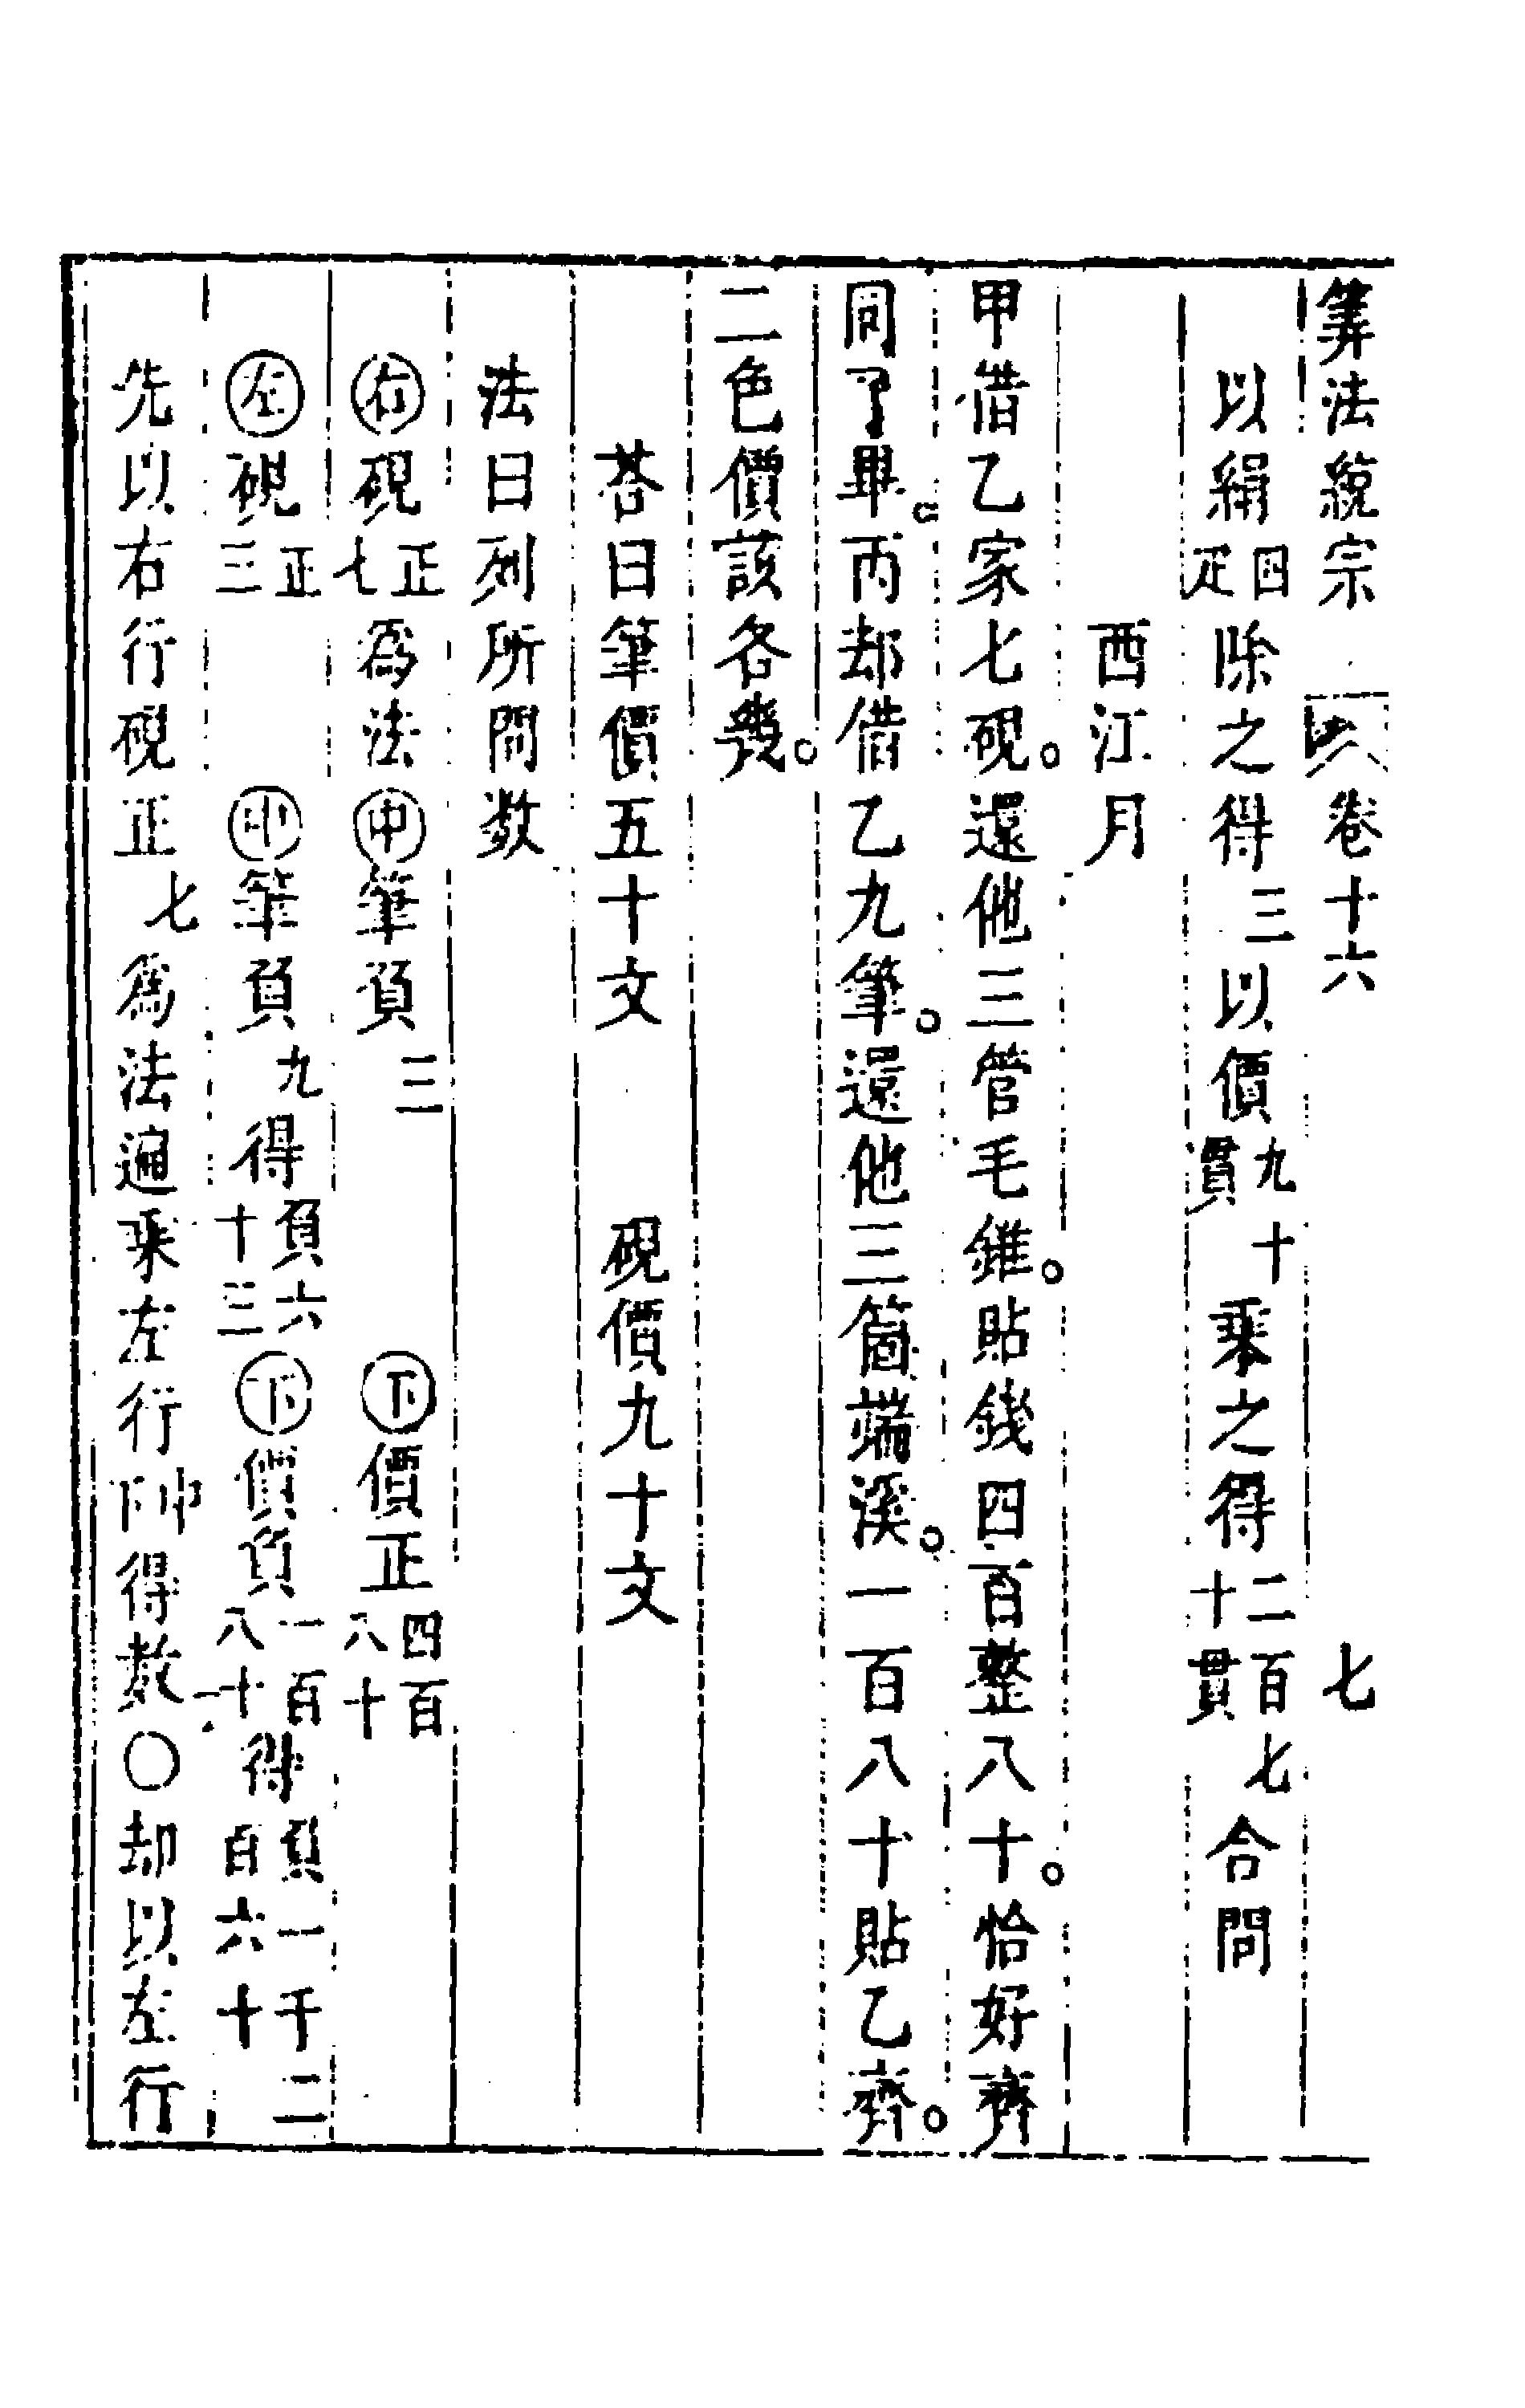 筭法統宗 卷十六 七
以絹四疋除之得三以價九十貫乘之得二百七十貫合問
西江月
甲借乙家七硯。還他三管毛錐。貼錢四百整八十。恰好齊
同了畢。丙却借乙九筆。還他三箇端溪。一百八十貼乙齊。
二色價該各幾。
荅曰筆價五十文 硯價九十文
法曰列所問数
右硯正七為法 中筆負三 下價正四百八十
左硯正三 中筆負九得負六十三 下價負一百八十得負一千二百六十
先以右行硯正七為法遍乘左行中下得数〇却以左行